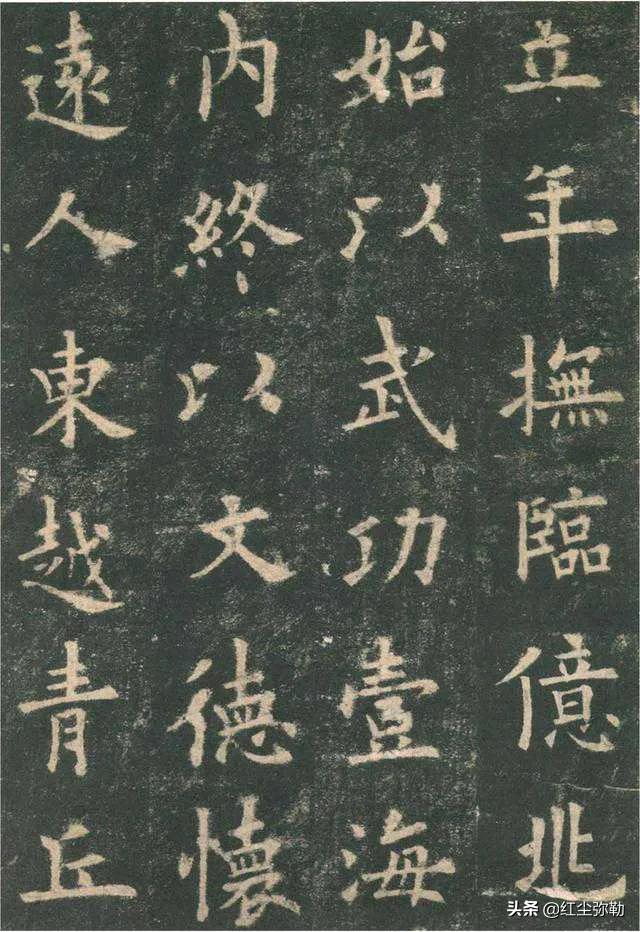 立年撫臨億兆
始以武功壹海
內終以文德懷
遠人東越青丘
头条 @红尘弥勒